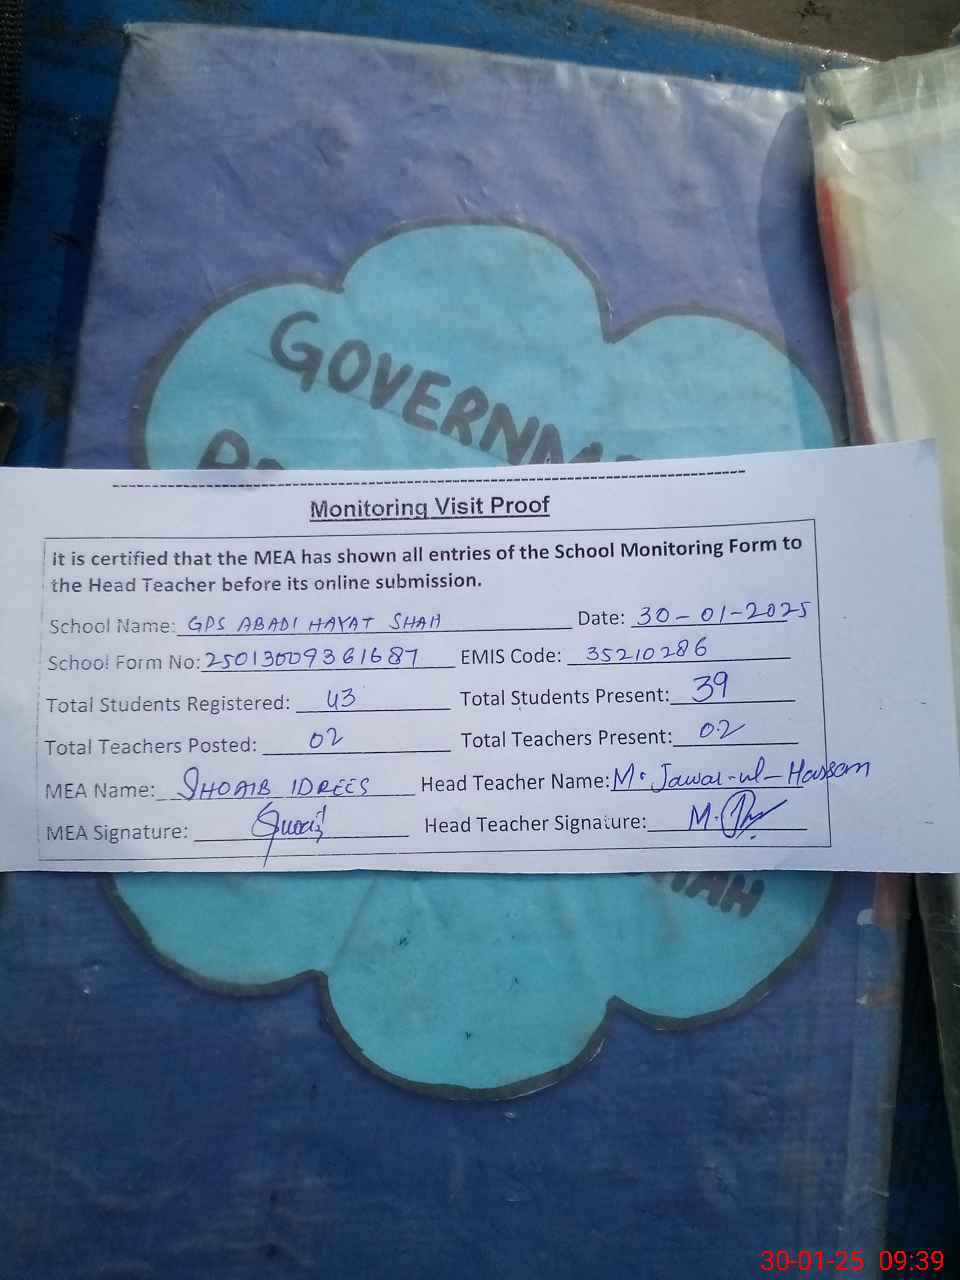 GOVERNM
Monitoring Visit Proof
it is certified that the MEA has shown all entries of the School Monitoring Form to
the Head Teacher before its online submission.
School Name: GPS ABADI HAYAT SHAH Date: 30-01-2025
School Form No: 25013009361687 EMIS Code: 35210286
Total Students Registered: 43 Total Students Present: 39
Total Teachers Posted: 02 Total Teachers Present: 02
MEA Name: SHOAIB IDREES Head Teacher Name: M. Jawar-ul-Hassan
MEA Signature: Head Teacher Signature: M.
HAH
30-01-25 09:39